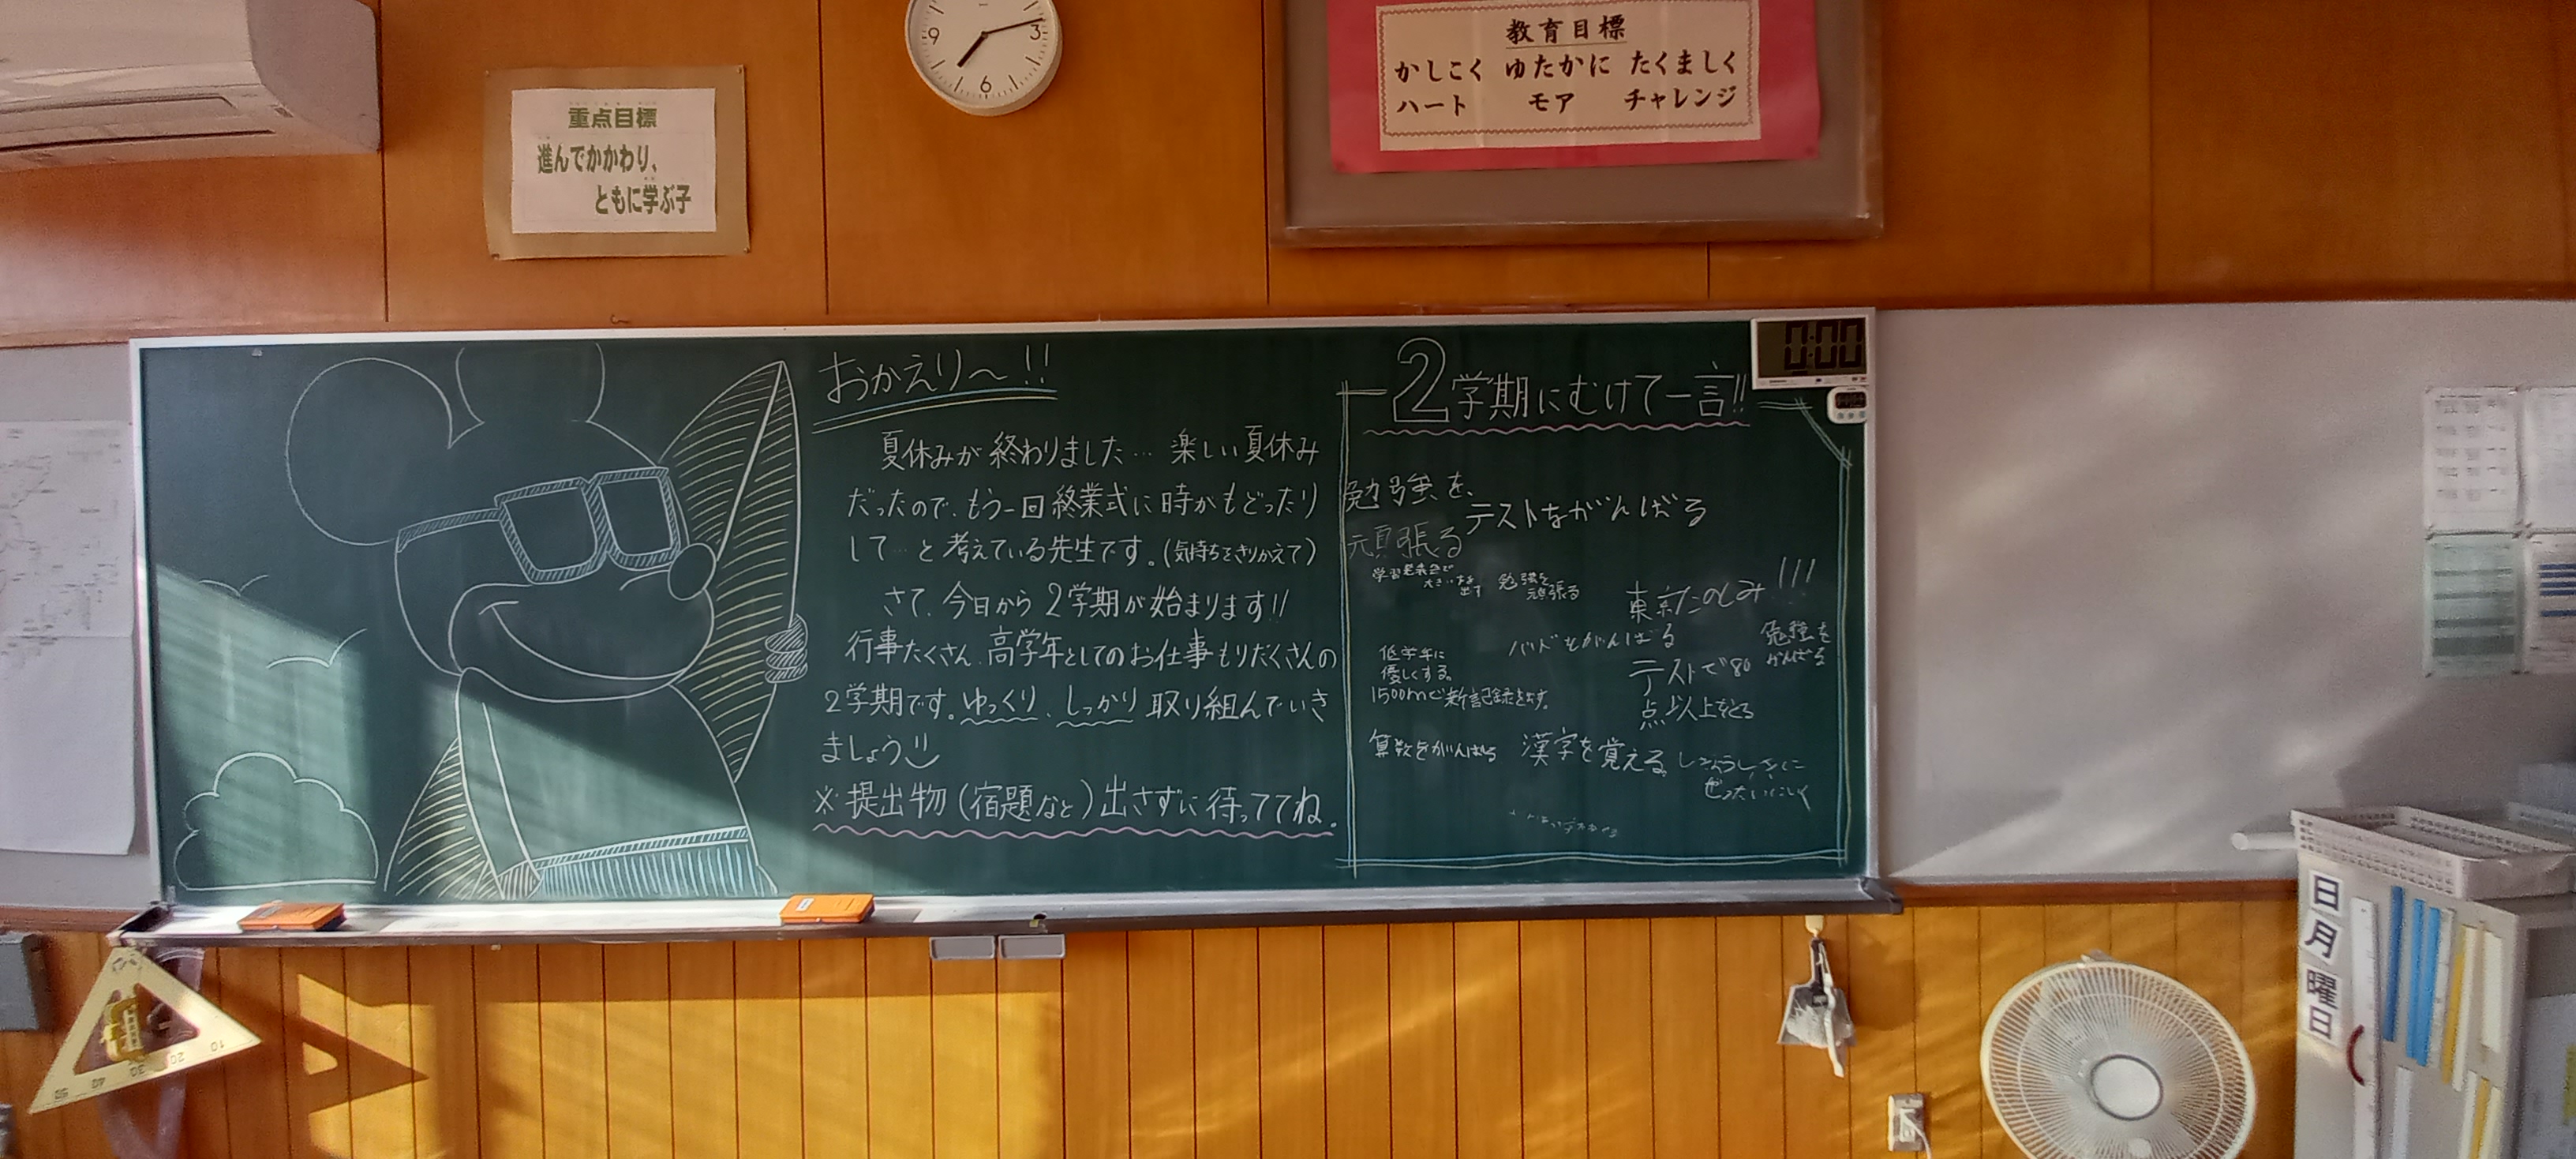 9
3
6
教育目標
かしこく ゆたかに たくましく
ハート モア チャレンジ
重点目標
進んでかかわり、
ともに学ぶ子
0:00
おかえり〜!!
夏休みが終わりました… 楽しい夏休み
だったので、もう一回終業式に時がもどったり
して…と考えている先生です。(気持ちをきりかえて)
さて、今日から2学期が始まります!!
行事たくさん、高学年としてのお仕事もりだくさんの
2学期です。ゆっくり、しっかり取り組んでいき
ましょう
※提出物(宿題など)出さずに待っててね。
2学期にむけて一言!!
勉強を、
頑張る
テストをがんばる
学習発表会で
大きい声を
出す
勉強を
頑張る
東京たのしみ!!!
バドをがんばる
勉強を
がんばる
低学年に
優しくする。
1500mで新記録を出す。
テストで80
点以上をとる
算数をがんばる
漢字を覚える。
日
月
曜
日
10
20
30
40
50